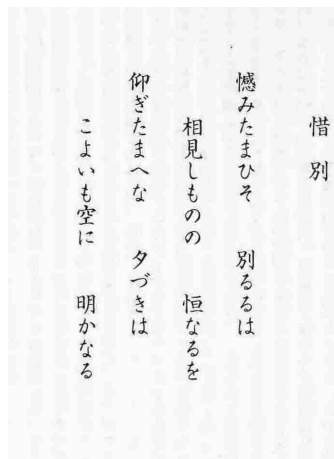 惜別
憾みたまひそ　別るるは
相見しものの　恒なるを
仰ぎたまへな　夕づきは
こよいも空に　明かなる